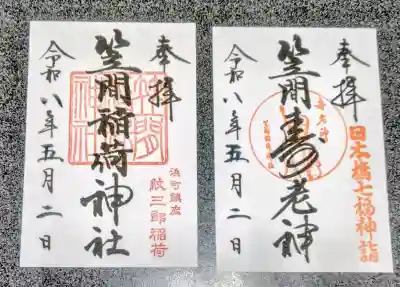 奉拝
笠間稲荷神社
笠間
稲荷
神社
浜町鎮座
紋三郎稲荷
令和八年五月二日
奉拝
日本橋七福神詣
笠間寿老神
令和八年五月二日